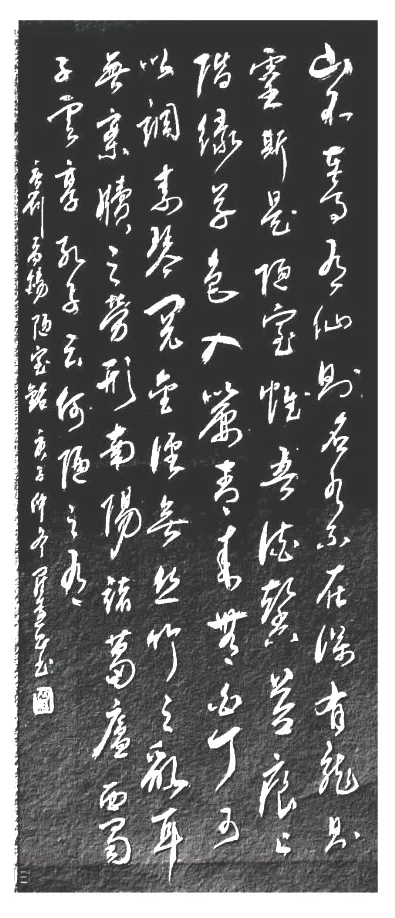 山不在高有仙則名水不在深有龍則
靈斯是陋室惟吾德馨苔痕上
階綠草色入簾青来無白丁可
以調素琴閱金經無絲竹之亂耳
無案牘之勞形南陽諸葛廬西蜀
子雲亭孔子云何陋之有
唐刘禹錫陋室銘 庚子仲冬 書